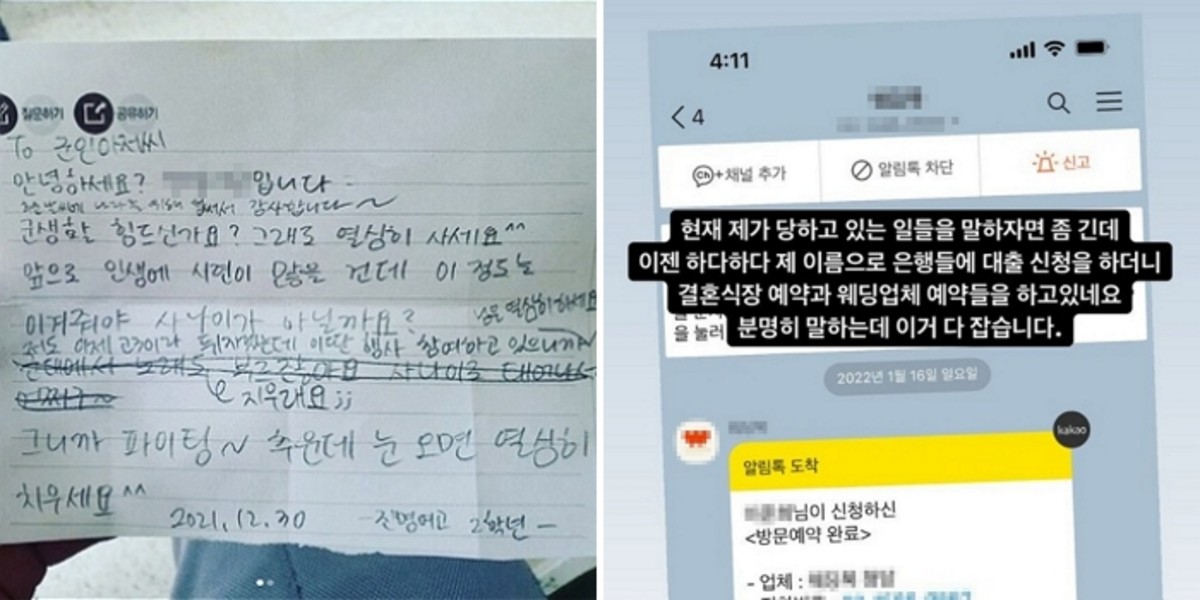 질문하기 공유하기
To 군인아저씨
안녕하세요? 입니다
감사합니다~
군생활 힘드신가요? 그래도 열심히 사세요^^
앞으로 인생에 시련이 많을 건데 이 정도는
이겨줘야 사나이가 아닐까요?
저도 이제 고3이라 뒤지겠는데 이딴 행사 참여하고 있으니까~
님은 열심히하세요
군대에서 노래도 부르잖아요 사나이로 태어나서
어쩌구~
지우래요;;
그니까 파이팅~ 추운데 눈 오면 열심히
치우세요^^
2021.12.30 -진명여고 2학년-
4:11
4
Ch+채널 추가 알림톡 차단 신고
현재 제가 당하고 있는 일들을 말하자면 좀 긴데
이젠 하다하다 제 이름으로 은행들에 대출 신청을 하더니
결혼식장 예약과 웨딩업체 예약들을 하고있네요
분명히 말하는데 이거 다 잡습니다.
을 눌러
2022년 1월 16일 일요일
kakao
알림톡 도착
님이 신청하신
<방문예약 완료>
- 업체 :